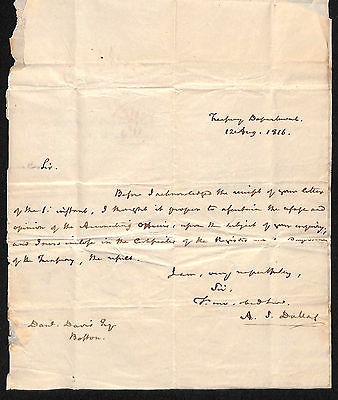 Treasury Department.
12 Aug. 1816.
Sir.
Before I acknowledged the receipt of your letter
of the 1st instant, I thought it proper to ascertain the usage and
opinion of the Accounting Officers, upon the subject of your enquiry,
and I now inclose in the Certificates of the Register and Comptroller
of the Treasury, the result.
I am, very respectfully,
Sir,
Yr. mo. obed. serv.
A. J. Dallas
Danl. Davis Esq.
Boston.